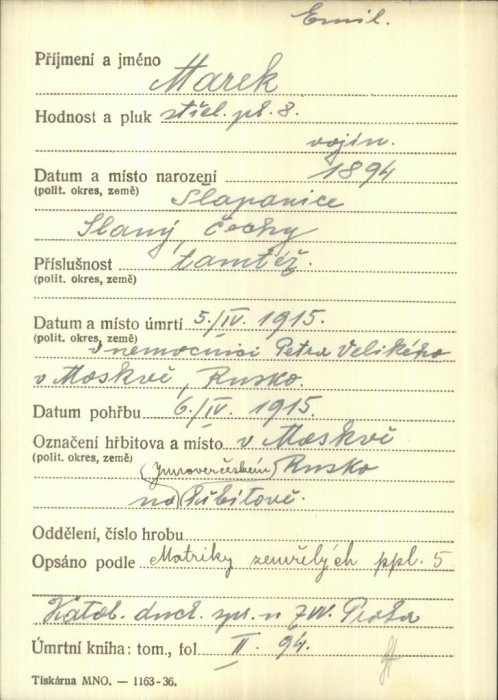 Emil.
Příjmení a jméno Marek
Hodnost a pluk střel. pl. 8.
vojín.
Datum a místo narození 1894
(polit. okres, země) Slapanice
Slaný, Čechy
Příslušnost tamtéž.
(polit. okres, země)
Datum a místo úmrtí 5./IV. 1915.
(polit. okres, země) v nemocnici Petra Velikého
v Moskvě, Rusko.
Datum pohřbu 6./IV. 1915.
Označení hřbitova a místo v Moskvě
(polit. okres, země) Rusko
na
Oddělení, číslo hrobu
Opsáno podle Matriky zemřelých ppl. 5
Katol. duch. spr. u ZVV. Praha
Úmrtní kniha: tom., fol II. 94.
Tiskárna MNO. — 1163-36.